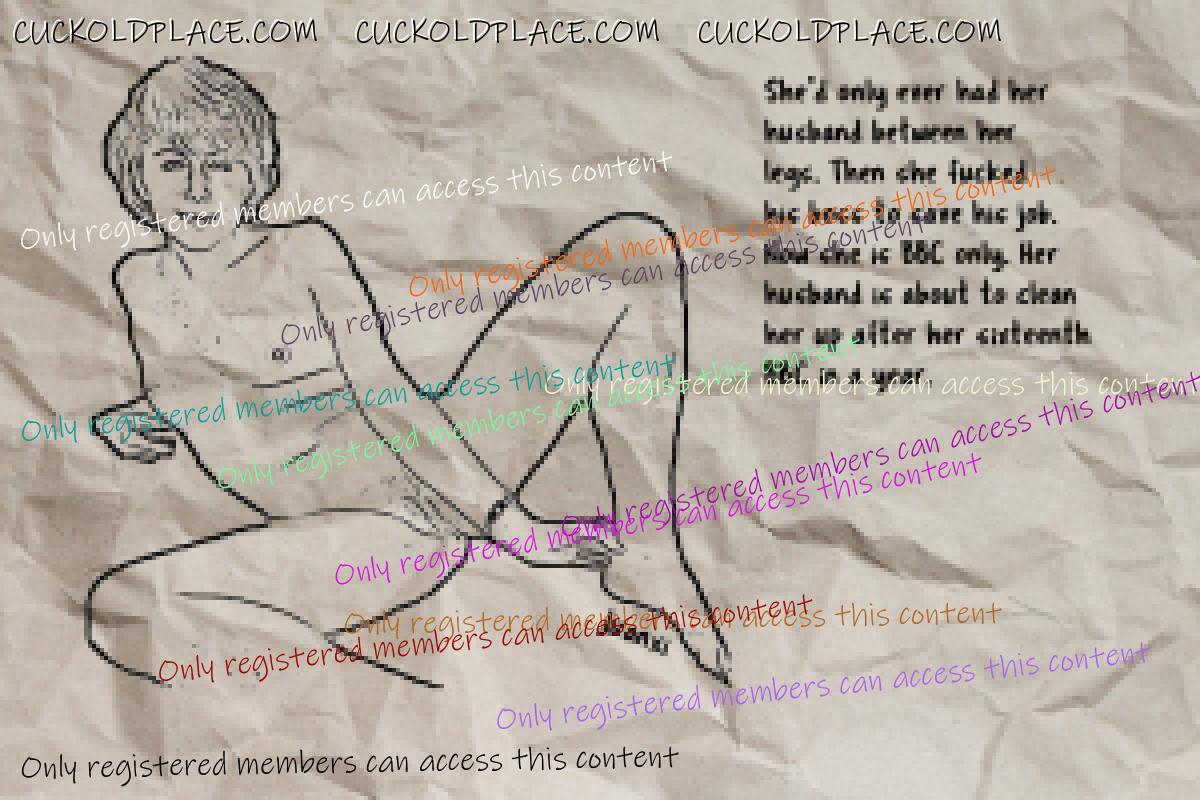 CUCKOLDPLACE.COM CUCKOLDPLACE.COM CUCKOLDPLACE.COM
She'd only ever had her
husband between her
legs. Then she fucked
his boss to save his job.
Now she is BBC only. Her
husband is about to clean
her up after her sixteenth
BBC in a year.
Only registered members can access this content
Only registered members can access this content
Only registered members can access this content
Only registered members can access this content
Only registered members can access this content
Only registered members can access this content
Only registered members can access this content
Only registered members can access this content
Only registered members can access this content
Only registered members can access this content
Only registered members can access this content
Only registered members can access this content